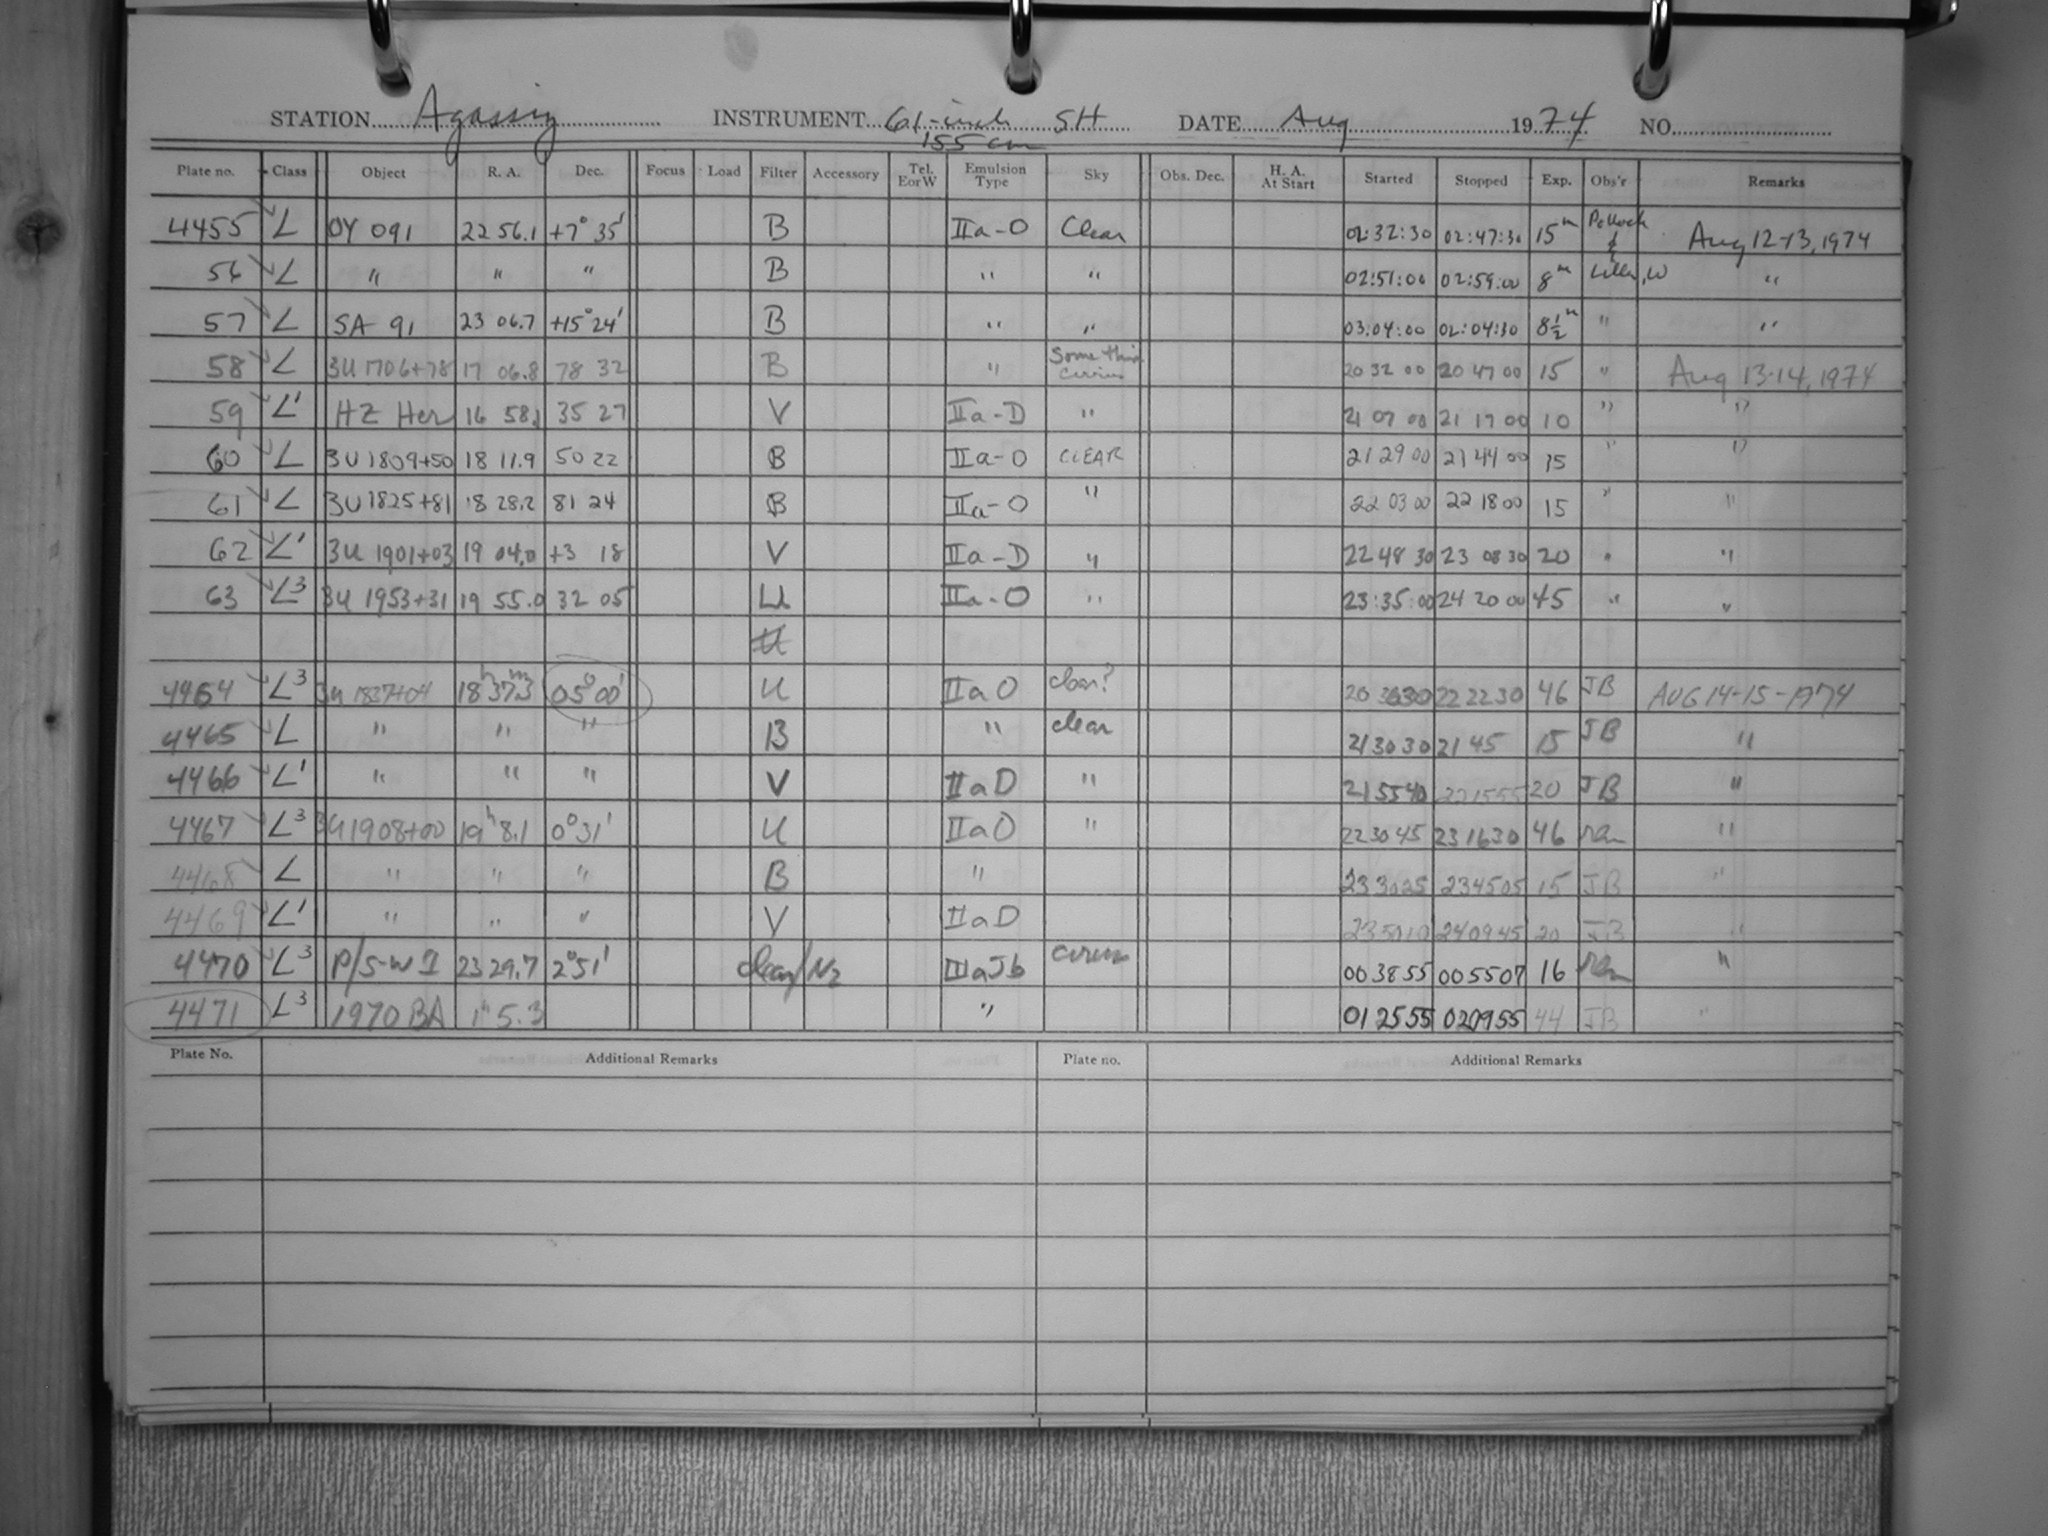 STATION Agassiz INSTRUMENT 61-inch SH DATE Aug 1974 NO.
155 cm
Plate no. Class Object R. A. Dec. Focus Load Filter Accessory Tel. E or W Emulsion Type Sky Obs. Dec. H. A. At Start Started Stopped Exp. Obs'r Remarks
4455 L OY 091 22 56.1 +7° 35' B IIa-O Clear 02:32:30 02:47:30 15m Pollock & Aug 12-13, 1974
56 L " " " B " " 02:51:00 02:59:00 8m Liller, W "
57 L SA 91 23 06.7 +15° 24' B " " 03:04:00 02:04:30 8½m " "
58 L 3U 1706+78 17 06.8 78 32 B " Some thin cirrus 20 32 00 20 47 00 15 " Aug 13-14, 1974
59 L' HZ Her 16 58.1 35 27 V IIa-D " 21 07 00 21 17 00 10 " "
60 L 3U 1809+50 18 11.9 50 22 B IIa-O CLEAR 21 29 00 21 44 00 15 " "
61 L 3U 1825+81 18 28.2 81 24 B IIa-O " 22 03 00 22 18 00 15 " "
62 L' 3U 1901+03 19 04.0 +3 18 V IIa-D " 22 48 30 23 08 30 20 " "
63 L3 3U 1953+31 19 55.0 32 05 U IIa-O " 23:35:00 24 20 00 45 " "
U
4464 L3 3U 1837+04 18h37m3 05°00' U IIaO clear? 20 22 22 30 46 JB AUG 14-15-1974
4465 L " " " B " clear 21 30 30 21 45 15 JB "
4466 L' " " " V IIaD " 21 55 40 22 15 55 20 JB "
4467 L3 3U 1908+00 19h 8.1 0°31' U IIaO " 22 30 45 23 16 30 46 "
4468 L " " " B " 23 30 25 23 45 05 15 JB "
4469 L' " " " V IIaD 23 50 10 24 09 45 20 JB "
4470 L3 P/S-W 1 23 29.7 2°51' clear/N2 IIIaJb cirrus 00 38 55 00 55 07 16 "
4471 L3 1970 BA 1h 5.3 " 01 25 55 02 09 55 44 JB "
Plate No. Additional Remarks Plate no. Additional Remarks